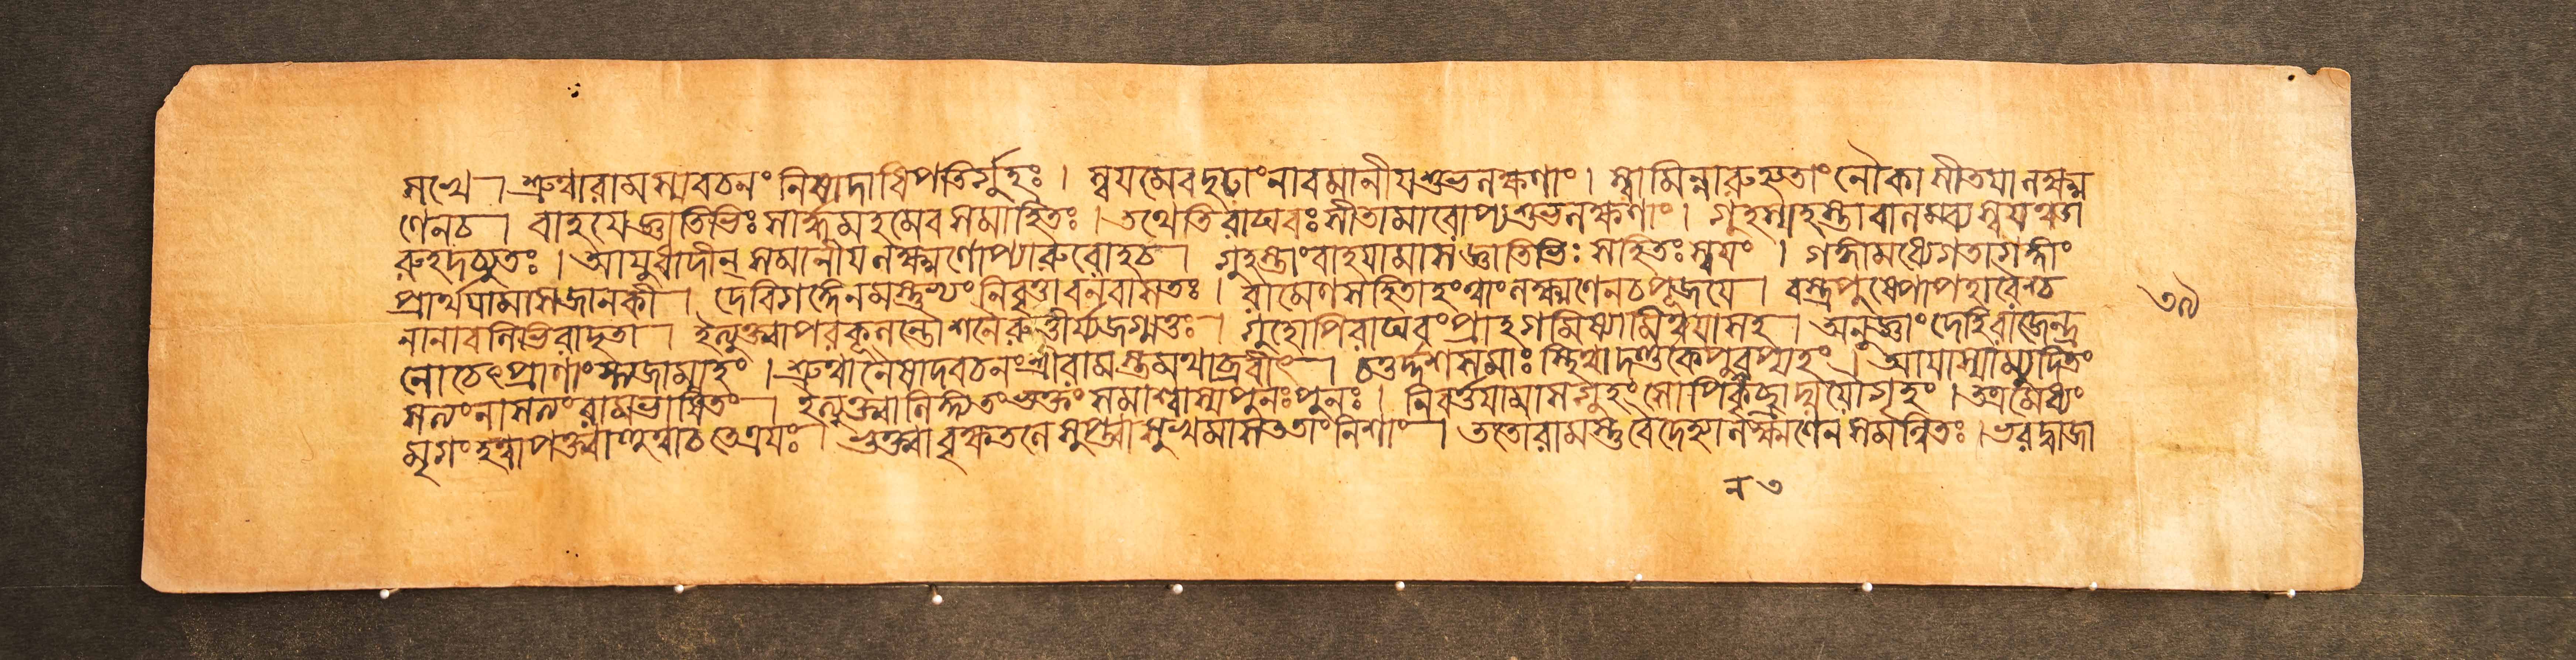 সখে । শ্রুত্বারামস্যবচনং নিষাদাধিপতির্গুহঃ । স্বয়মেবদৃঢাংনাবমানীয়শুভলক্ষণাং । স্বামিন্নারুহ্যতাং নৌকা সীতয়ালক্ষ্ম
ণেনচ । বাহয়ে জ্ঞাতিভিঃ সার্দ্ধমহমেব সমাহিতঃ । তথেতি রাঘবঃ সীতামারোপ্য শুভলক্ষণাং । গুহস্যহস্তাবালম্ব্য স্বয়ঞ্চা
রুহদচ্যুতঃ । আয়ুধাদীন্ সমানীয়লক্ষ্মণোপ্যারুরোহচ । গুহস্তাংবাহয়ামাস জ্ঞাতিভিঃ সহিতঃ স্বয়ং । গঙ্গামধ্যেগতাগঙ্গাং
প্রার্থয়ামাসজানকী । দেবিগঙ্গেনমস্তুভ্যং নিবৃত্তাবনবাসতঃ । রামেণসহিতাহংত্বাং লক্ষ্মণেনচপূজয়ে । বস্ত্রপুষ্পোপহারৈশ্চ
নানাবলিভিরাদৃতা । ইত্যুক্ত্বাপরকূলন্তৌ শনৈরুত্তীর্য্যজগ্মতুঃ । গুহোপিরাঘবংপ্রাহগমিষ্যামিত্বয়াসহ । অনুজ্ঞাং দেহিরাজেন্দ্র
নোচেৎপ্রাণাংস্ত্যজাম্যহং । শ্রুত্বানৈষাদবচনংশ্রীরামস্তমথাব্রবীৎ । চতুর্দ্দশসমাঃ স্থিত্বাদণ্ডকেপুনরপ্যহং । আয়াস্যাম্যুদিতং
সত্যংনাসত্যংরামভাষিতং । ইত্যুক্ত্বালিঙ্গ্যতংভক্তং সমাশ্বাস্যপুনঃপুনঃ । নিবর্ত্তয়ামাসগুহং সোপিকৃচ্ছ্রাদ্যয়ৌগৃহং । তত্রমেধ্যং
মৃগং হত্বাপক্ত্বাহুত্বাচতেত্রয়ঃ । ভুক্ত্বাবৃক্ষতলে সুপ্ত্বাসুখমাসততাংনিশাং । ততোরামস্তুবৈদেহ্যালক্ষ্মণেন সমন্বিতঃ । ভরদ্বাজা
৩৯
ল ৩